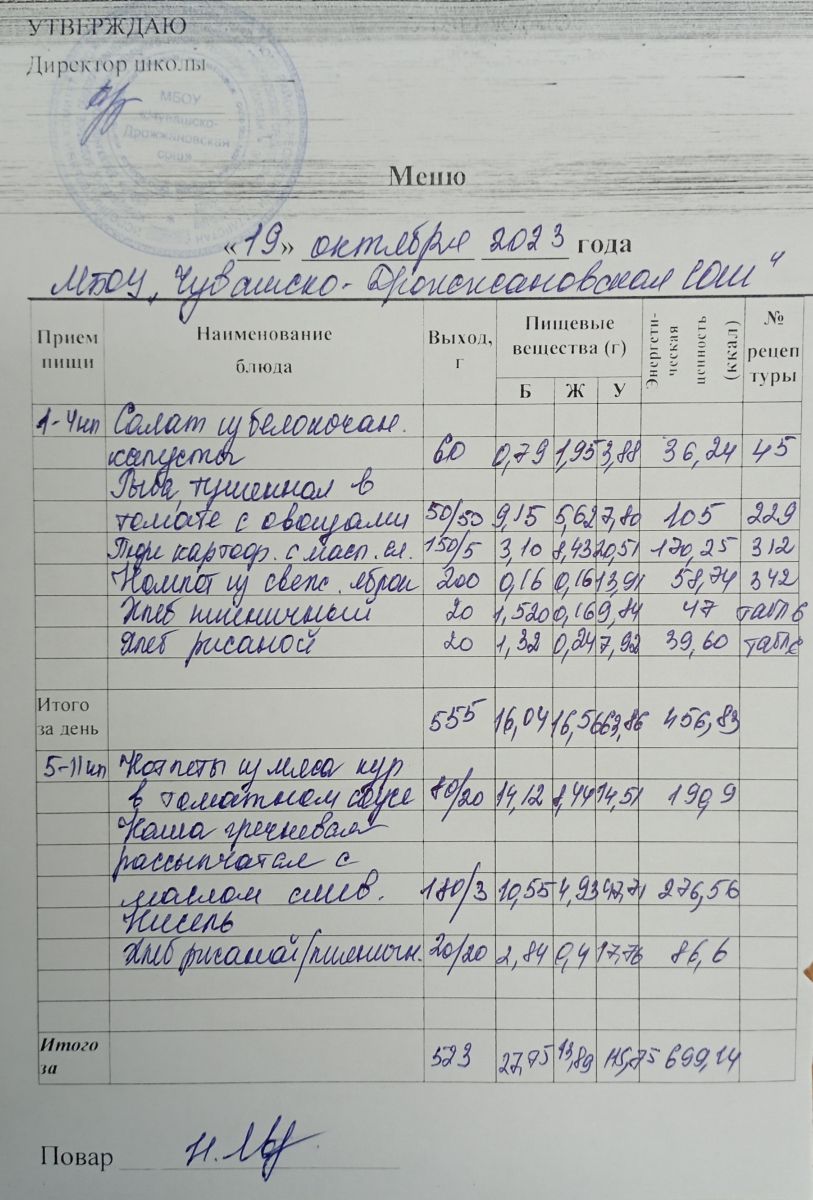 УТВЕРЖДАЮ
Директор школы
МБОУ
«Чувашско-
Дрожжановская
сош»
Меню
«19» октября 2023 года
МБОУ „Чувашско-Дрожжановская СОШ“
Прием пищи Наименование блюда Выход, г Пищевые вещества (г) Энергети-ческая ценность (ккал) № рецеп туры
Б Ж У
1-4кл Салат из белокочан.
капусты 60 0,79 1,95 3,88 36,24 45
Рыба, тушенная в
томате с овощами 50/50 9,15 5,62 7,80 105 229
Пюре картоф. с масл. сл. 150/5 3,10 8,43 20,51 170,25 312
Компот из свеж. яблок 200 0,16 0,16 13,91 58,74 342
Хлеб пшеничный 20 1,520 0,16 9,84 47 табл 6
Хлеб ржаной 20 1,32 0,24 7,92 39,60 табл 6
Итого
за день 555 16,04 16,56 63,86 456,83
5-11кл Котлеты из мяса кур
в томатном соусе 80/20 14,12 8,44 14,51 190,9
Каша гречневая
рассыпчатая с
маслом слив. 180/3 10,55 4,93 47,71 276,56
Кисель
Хлеб ржаной/пшеничн. 20/20 2,84 0,4 17,76 86,6
Итого
за 523 27,75 13,89 115,75 699,14
Повар